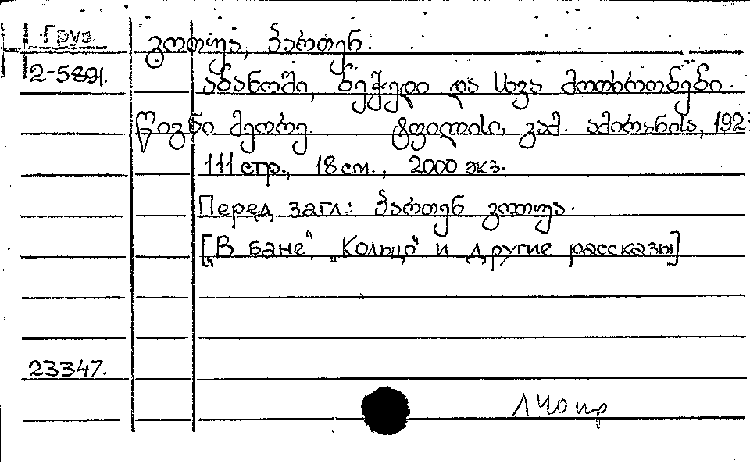 Груз.
გოთუა, პართენ.
2-5891.
აბანოში, ბეჭედი და სხვა მოთხრობები.
წიგნი მეორე. ტფილისი, გამ. ამირანისა, 192
111 стр., 18 см., 2000 экз.
Перед загл.: პართენ გოთუა.
["В бане", "Кольцо" и другие рассказы]
23347.